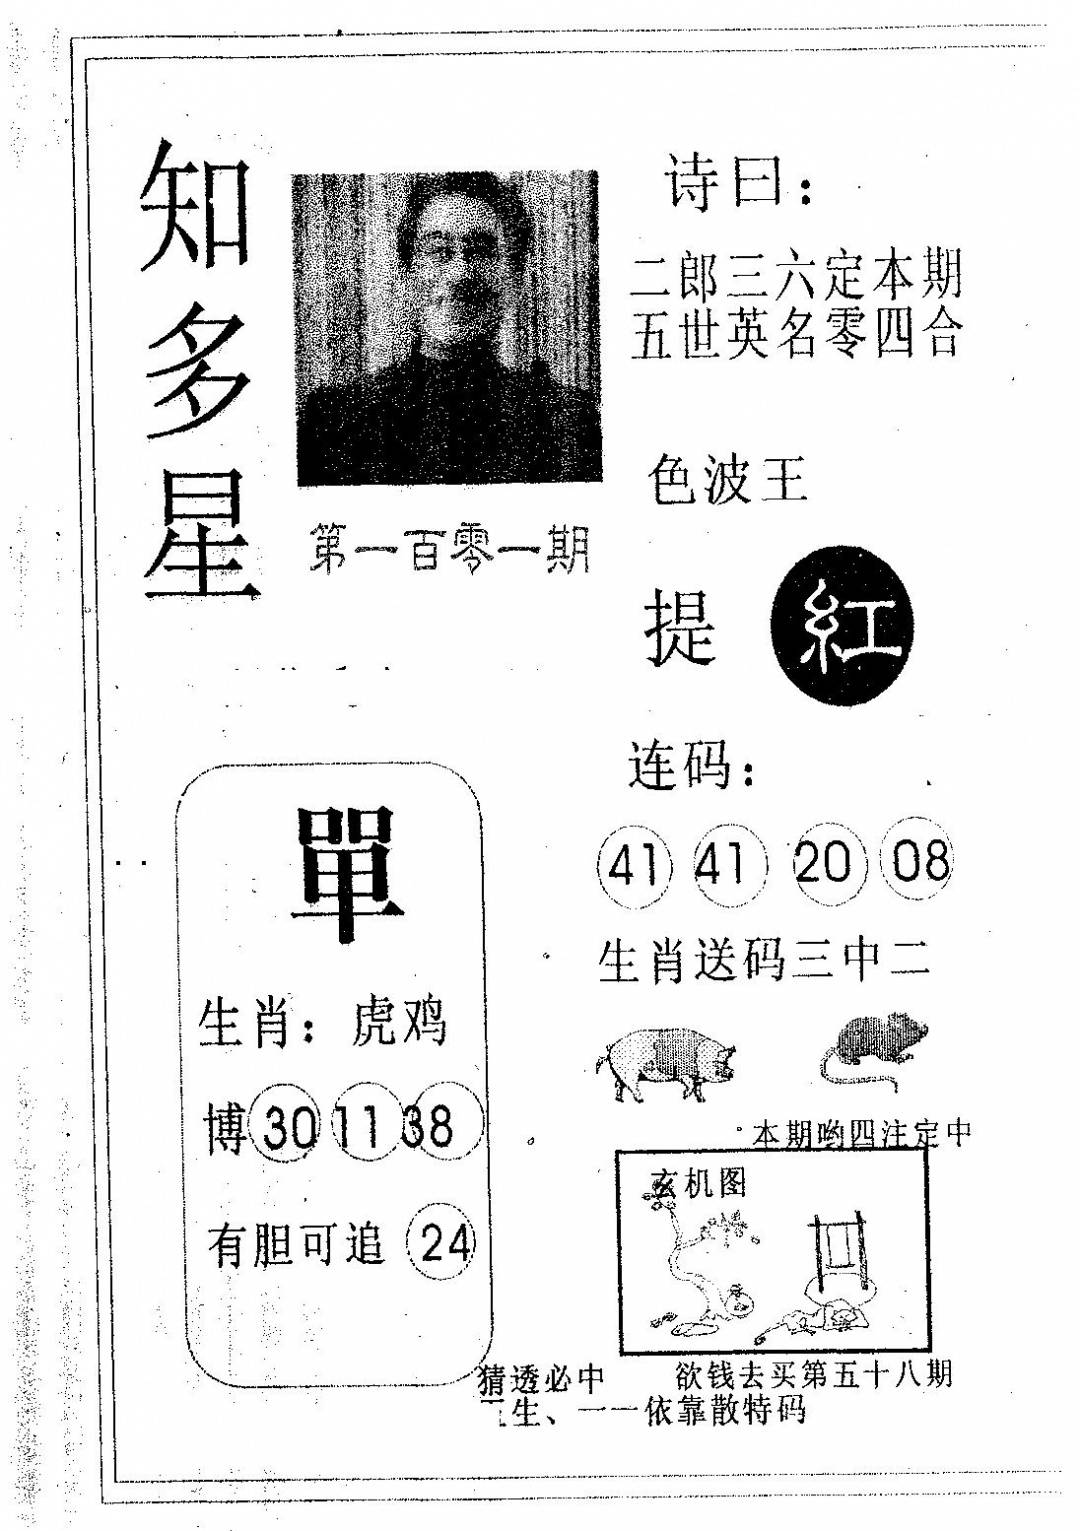 知多星
诗曰：
二郎三六定本期
五世英名零四合
色波王
第一百零一期
提 紅
连码：
41 41 20 08
單
生肖送码三中二
生肖：虎鸡
博 30 11 38
本期哟四注定中
有胆可追 24
玄机图
猜透必中 欲钱去买第五十八期
生、一一依靠散特码